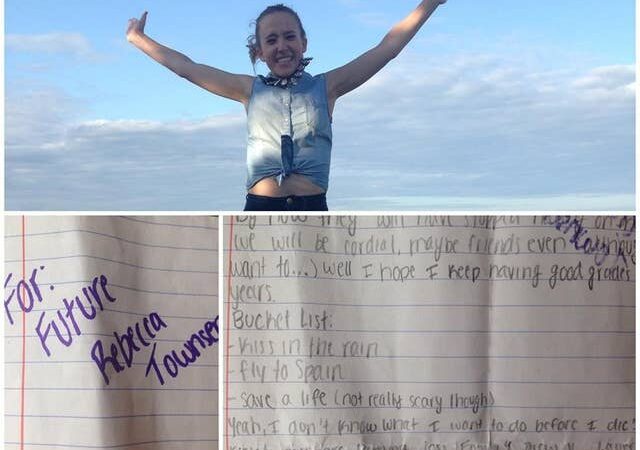 For:
Future
Rebecca
Townsen
By now they will have stopped
(we will be cordial, maybe friends even
want to...) well I hope I keep having good grades
years.
Bucket List:
- Kiss in the rain
- fly to Spain
- save a life (not really scary though)
Yeah, I don't know what I want to do before I die!